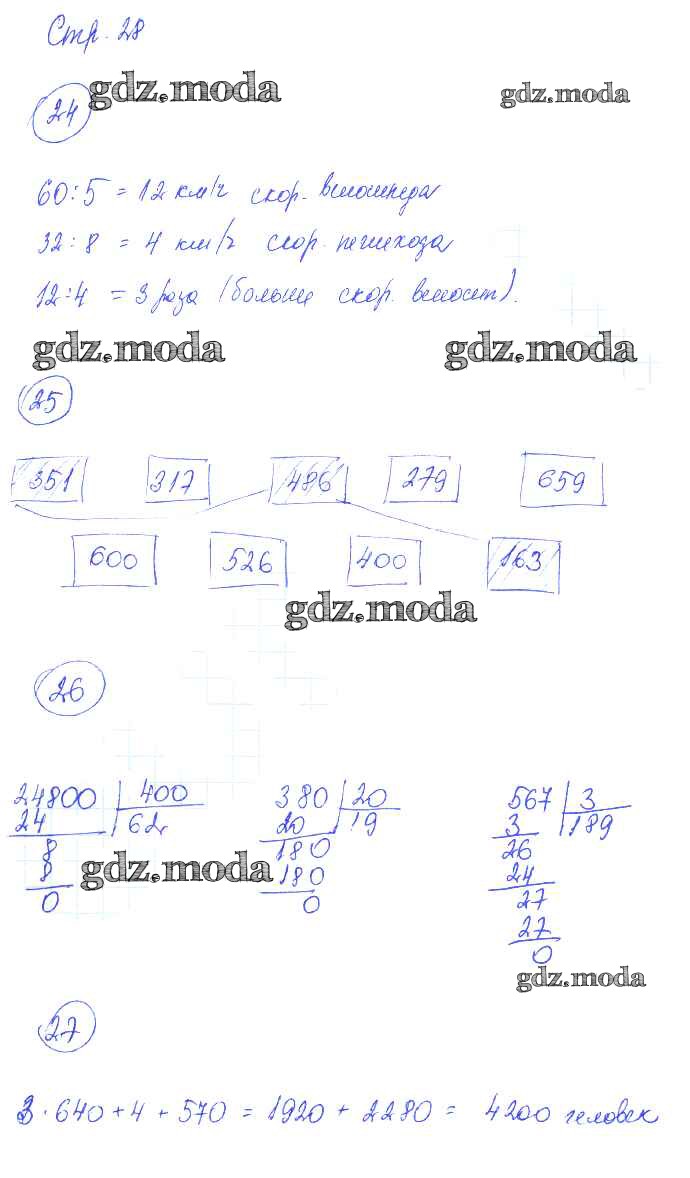 Стр. 28
gdz.moda gdz.moda
24
60:5 = 12 км/ч скор. велосипеда
32:8 = 4 км/ч скор. пешехода
12:4 = 3 раза (больше скор. велосип).
gdz.moda gdz.moda
25
351 317 486 279 659
600 526 400 163
gdz.moda
26
24800 400 380 20 567 3
24 62 20 19 3 189
8 180 26
8 180 24
0 0 27
27
0
gdz.moda
gdz.moda
27
3·640+4+570 = 1920 + 2280 = 4200 человек